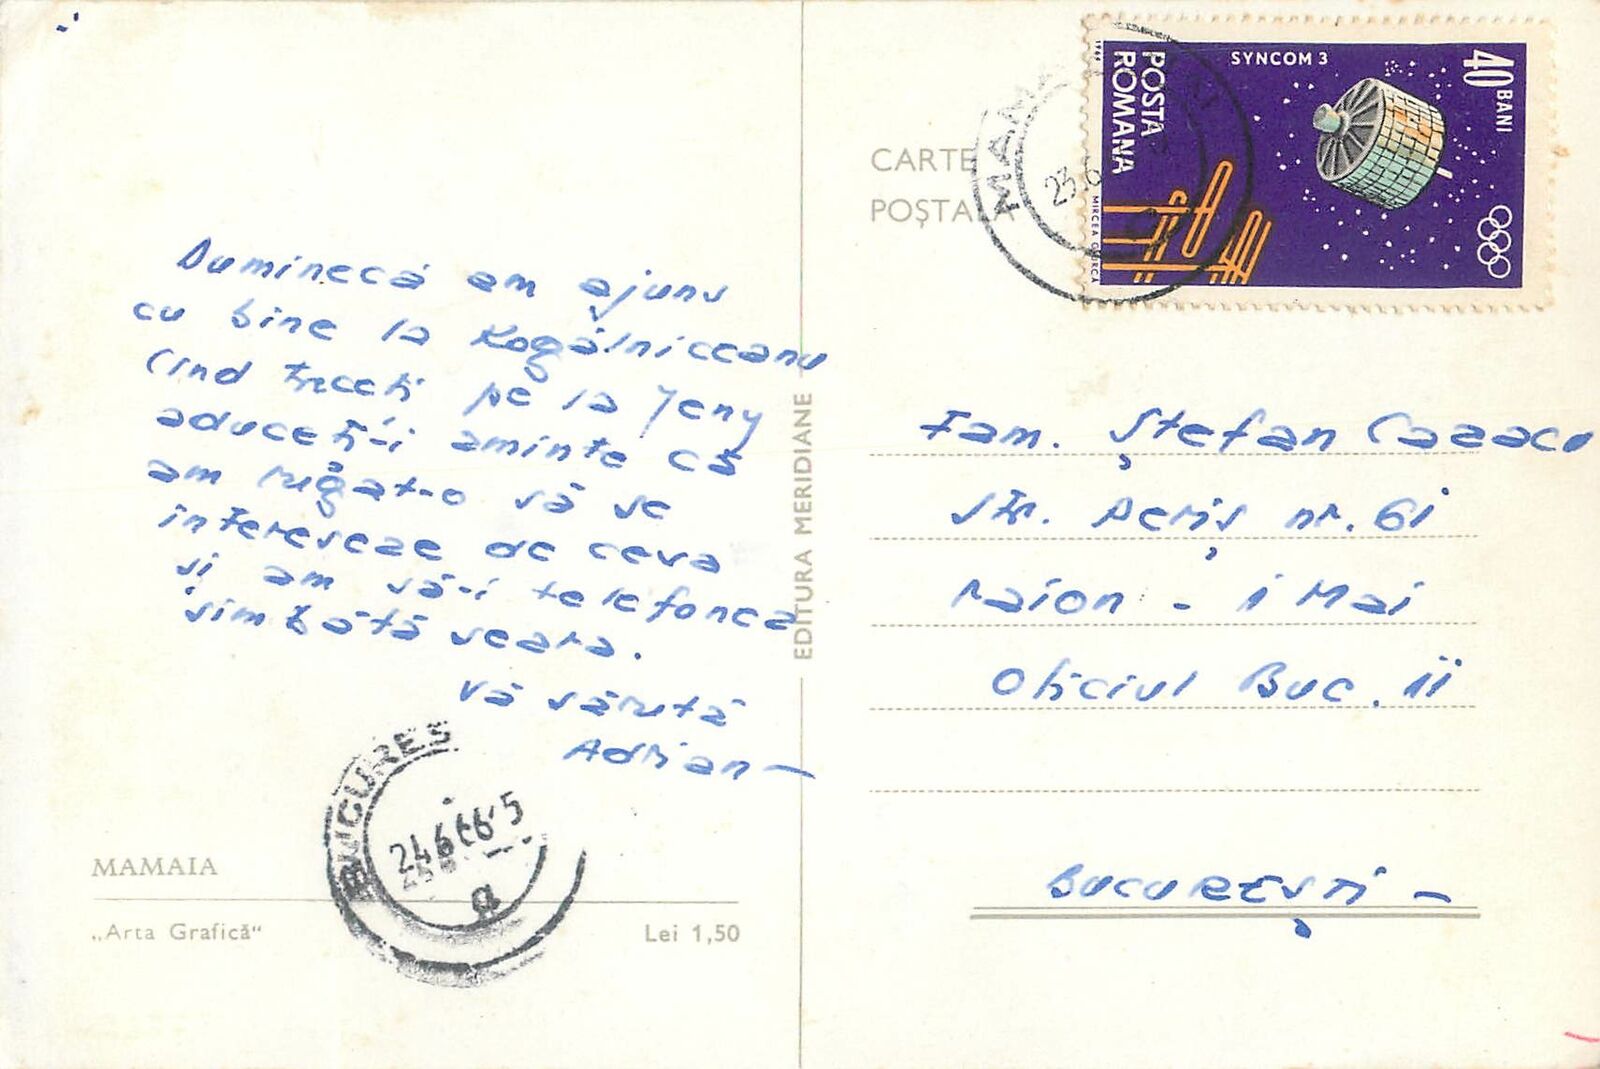 Duminecă am ajuns
cu bine la Kogălniceanu
Cînd treceți pe la Jeny
aduceți-i aminte că
am rugat-o să se
intereseze de ceva
și am să-i telefonea
simbătă seara.
Vă sărută
Adrian -
MAMAIA
„Arta Grafică"
Lei 1,50
BUCUREȘ
24 6 66 5
a
EDITURA MERIDIANE
CARTE
POȘTALĂ
MAM
23 6
POSTA
ROMANA
1965
SYNCOM 3
40 BANI
MIRCEA
Fam. Ștefan Cazacu
Str. nr. 61
raion - 1 Mai
Oficiul Buc. II
BUCUREȘTI -